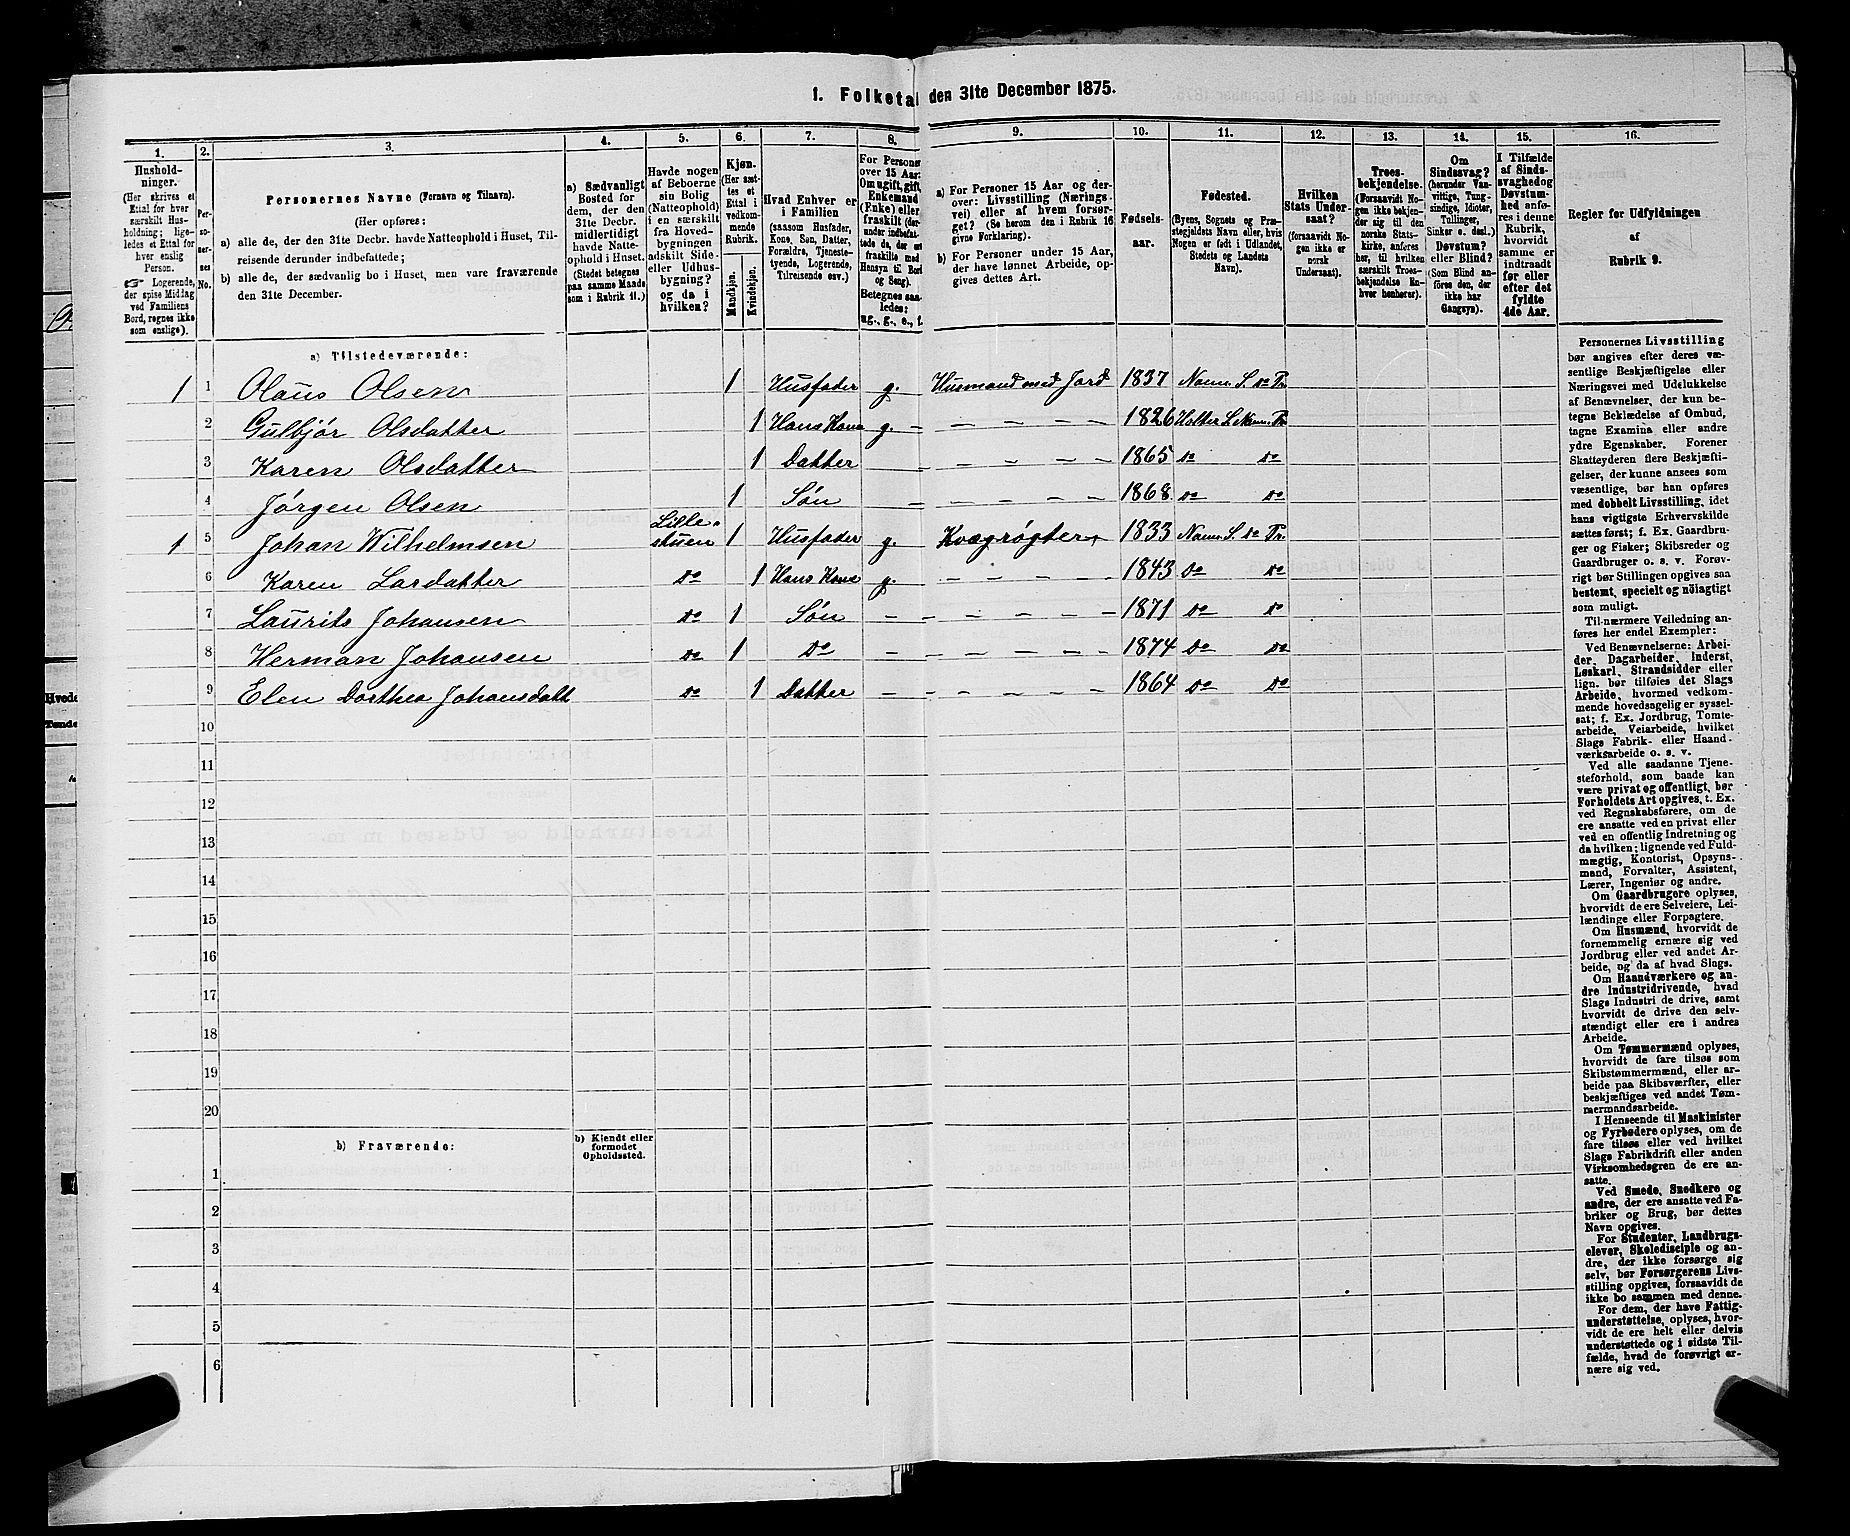 1. Folketal den 31te December 1875.
1. 2. 3. 4. 5. 6. 7. 8. 9. 10. 11. 12. 13. 14. 15. 16.
Husholdninger.
(Her skrives et
Ettal for hver
særskilt Husholdning;
ligeledes et Ettal for
hver enslig
Person.
Logerende,
der spise Middag
ved Familiens
Bord, regnes ikke
som enslige).
Personernes No.
Personernes Navne (Fornavn og Tilnavn).
(Her opføres:
a) alle de, der den 31te Decbr. havde Natteophold i Huset, Tilreisende derunder indbefattede;
b) alle de, der sædvanlig bo i Huset, men vare fraværende
den 31te December.
a) Sædvanligt
Bosted for
dem, der den
31te Decbr.
midlertidigt
havde Natteophold i Huset.
(Stedet betegnes
paa samme Maade
som i Rubrik 11.)
Havde nogen
af Beboerne
sin Bolig
(Natteophold)
i en særskilt
fra Hovedbygningen
adskilt Side-
eller Udhusbygning?
og da i
hvilken?
Kjøn.
(Her sættes et
Ettal i
vedkommende
Rubrik.
Mandkjøn. Kvindekjøn.
Hvad Enhver er
i Familien
(saasom Husfader,
Kone, Søn, Datter,
Forældre, Tjenestetyende, Logerende,
Tilreisende osv.)
For Personer
over 15 Aar:
Om ugift, gift,
Enkemand
(Enke) eller
fraskilt
Betegnes saaledes:
ug., g., e., f.
a) For Personer 15 Aar og derover: Livsstilling (Næringsvei) eller af hvem forsørget? (Se herom den i Rubrik 16
givne Forklaring).
b) For Personer under 15 Aar,
der have lønnet Arbeide, opgives dettes Art.
Fødselsaar.
Fødested.
(Byens, Sognets og Præstegjeldets Navn eller, hvis
Nogen er født i Udlandet,
Stedets og Landets
Navn).
Hvilken
Stats Undersaat?
(forsaavidt Nogen ikke er
norsk
Undersaat).
Troesbekjendelse.
(Forsaavidt Nogen ikke bekjender sig til den
norske Statskirke, anføres
her, til hvilken
særskilt Troesbekjendelse Enhver henhører).
Om
Sindssvag?
(herunder Vanvittige, Tungsindige, Idioter,
Tullinger,
Sinker o. desl.)
Døvstum?
eller Blind?
(Som Blind anføres den, der
ikke har
Gangsyn).
I Tilfælde
af Sindssvaghed og
Døvstumhed anføres i denne
Rubrik,
hvorvidt
samme er
indtraadt
før eller
efter det
fyldte
4de Aar.
Regler for Udfyldningen
af
Rubrik 9.
a) Tilstedeværende:
1 1 Olaus Olsen 1 Husfader g. Husmand med Jord 1837 Nann. S. do Pr.
2 Gulbjør Olsdatter 1 Hans Kone g. 1826 Holter S. Nann. Pr.
3 Karen Olsdatter 1 Datter 1865 do do
4 Jørgen Olsen 1 Søn 1868 do do
1 5 Johan Wilhelmsen Lillestuen 1 Husfader g. Kvægrøgter 1833 Nann. S. do Pr.
6 Karen Larsdatter do 1 Hans Kone g. 1843 do do
7 Laurits Johansen do 1 Søn 1871 do do
8 Herman Johansen do 1 do 1874 do do
9 Elen Dorthea Johansdatt do 1 Datter 1864 do do
10
11
12
13
14
15
16
17
18
19
20
b) Fraværende: b) Kjendt eller
formodet
Opholdssted.
1
2
3
4
5
6
Personernes Livsstilling
bør angives efter deres væsentlige Beskjæftigelse eller
Næringsvei med Udelukkelse
af Benævnelser, der kun betegne Beklædelse af Ombud,
tagne Examina eller andre
ydre Egenskaber. Forener
Skatteyderen flere Beskjæftigelser, der kunne ansees som
væsentlige, bør han opføres
med dobbelt Livsstilling, idet
hans vigtigste Erhvervskilde
sættes først; f. Ex. Gaardbruger og Fisker; Skibsreder og
Gaardbruger o. s. v. Forøvrigt bør Stillingen opgives saa
bestemt, specielt og nøiagtigt
som muligt.
Til nærmere Veiledning anføres her endel Exempler:
Ved Benævnelserne: Arbeider, Dagarbeider, Inderst,
Løskarl, Strandsidder eller
lign. bør tilføies det Slags
Arbeide, hvormed vedkommende hovedsagelig er sysselsat; f. Ex. Jordbrug, Tomtearbeide, Veiarbeide, hvilket
Slags Fabrik- eller Haandværksarbeide o. s. v.
Ved alle saadanne Tjenesteforhold, som baade kan
være privat og offentligt, bør
Forholdets Art opgives, t. Ex.
ved Regnskabsførere, om de
ere ansatte ved en privat eller
ved en offentlig Indretning og
da hvilken; lignende ved Fuldmægtig, Kontorist, Opsynsmand, Forvalter, Assistent,
Lærer, Ingeniør og andre.
Om Gaardbrugere oplyses,
hvorvidt de ere Selveiere, Leilændinge eller Forpagtere.
Om Husmænd, hvorvidt de
fornemmelig ernære sig ved
Jordbrug eller ved andet Arbeide, og da af hvad Slags.
Om Haandværkere og andre Industridrivende, hvad
Slags Industri de drive, samt
hvorvidt de drive den selvstændigt eller ere i andres
Arbeide.
Om Tømmermænd oplyses,
hvorvidt de fare tilsøs som
Skibstømmermænd, eller arbeide paa Skibsværfter, eller
beskjæftiges ved andet Tømmermandsarbeide.
I Henseende til Maskinister
og Fyrbødere oplyses, om de
fare tilsøs eller ved hvilket
Slags Fabrikdrift eller anden
Virksomhedsgren de ere ansatte.
Ved Smede, Snedkere og
andre, der ere ansatte ved Fabriker og Brug, bør dettes
Navn opgives.
For Studenter, Landbrugselever, Skoledisciple og andre, der ikke forsørge sig
selv, bør Forsørgerens Livsstilling opgives, forsaavidt de
ikke bo sammen med denne.
For dem, der have Fattigunderstøttelse, oplyses, hvorvidt de ere helt eller delvis
understøttede og i sidste Tilfælde, hvad de forøvrigt ernære sig ved.